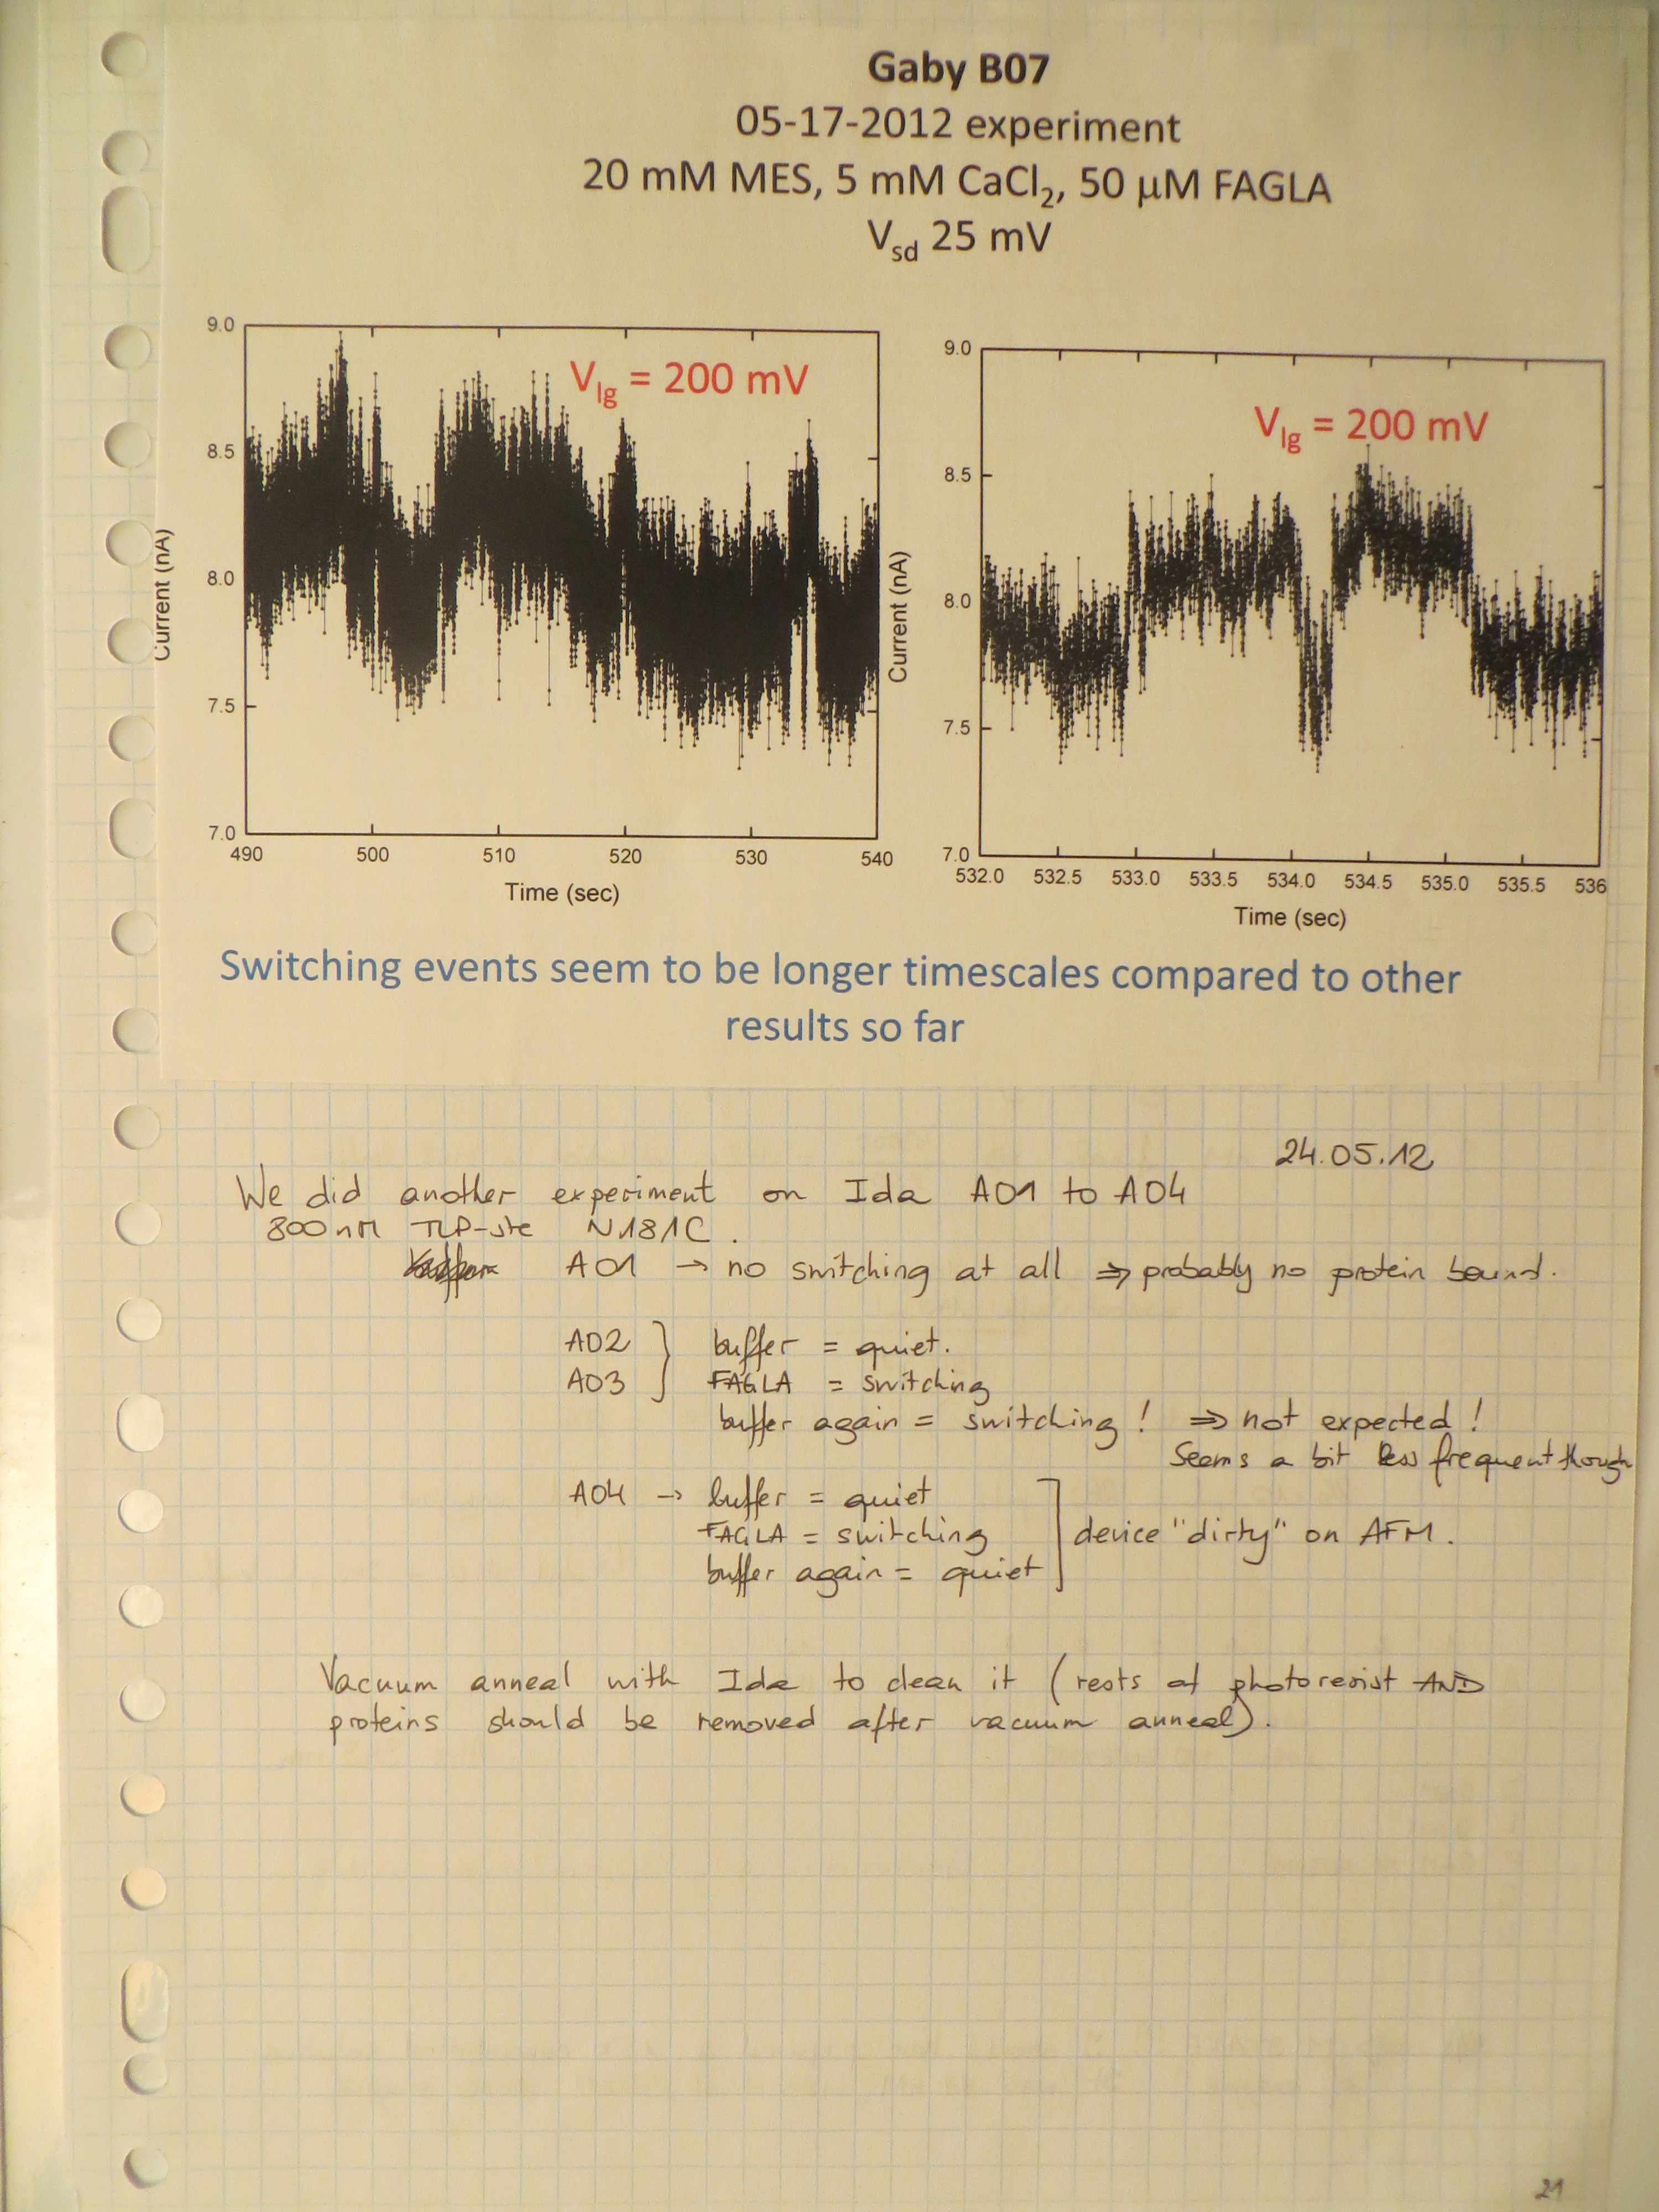 Gaby B07
05-17-2012 experiment
20 mM MES, 5 mM CaCl₂, 50 μM FAGLA
Vsd 25 mV
9.0
8.5
8.0
7.5
7.0
490 500 510 520 530 540
Current (nA)
Time (sec)
Vlg = 200 mV
9.0
8.5
8.0
7.5
7.0
532.0 532.5 533.0 533.5 534.0 534.5 535.0 535.5 536
Current (nA)
Time (sec)
Vlg = 200 mV
Switching events seem to be longer timescales compared to other
results so far
24.05.12
We did another experiment on Ida A01 to A04
800nM TLP-ste N181C.
A01 → no switching at all ⇒ probably no protein bound.
A02 buffer = quiet.
A03 FAGLA = switching
buffer again = switching! ⇒ not expected!
Seems a bit less frequent though
A04 → buffer = quiet
FAGLA = switching device "dirty" on AFM.
buffer again = quiet
Vacuum anneal with Ida to clean it (rests of photoresist AND
proteins should be removed after vacuum anneal).
21